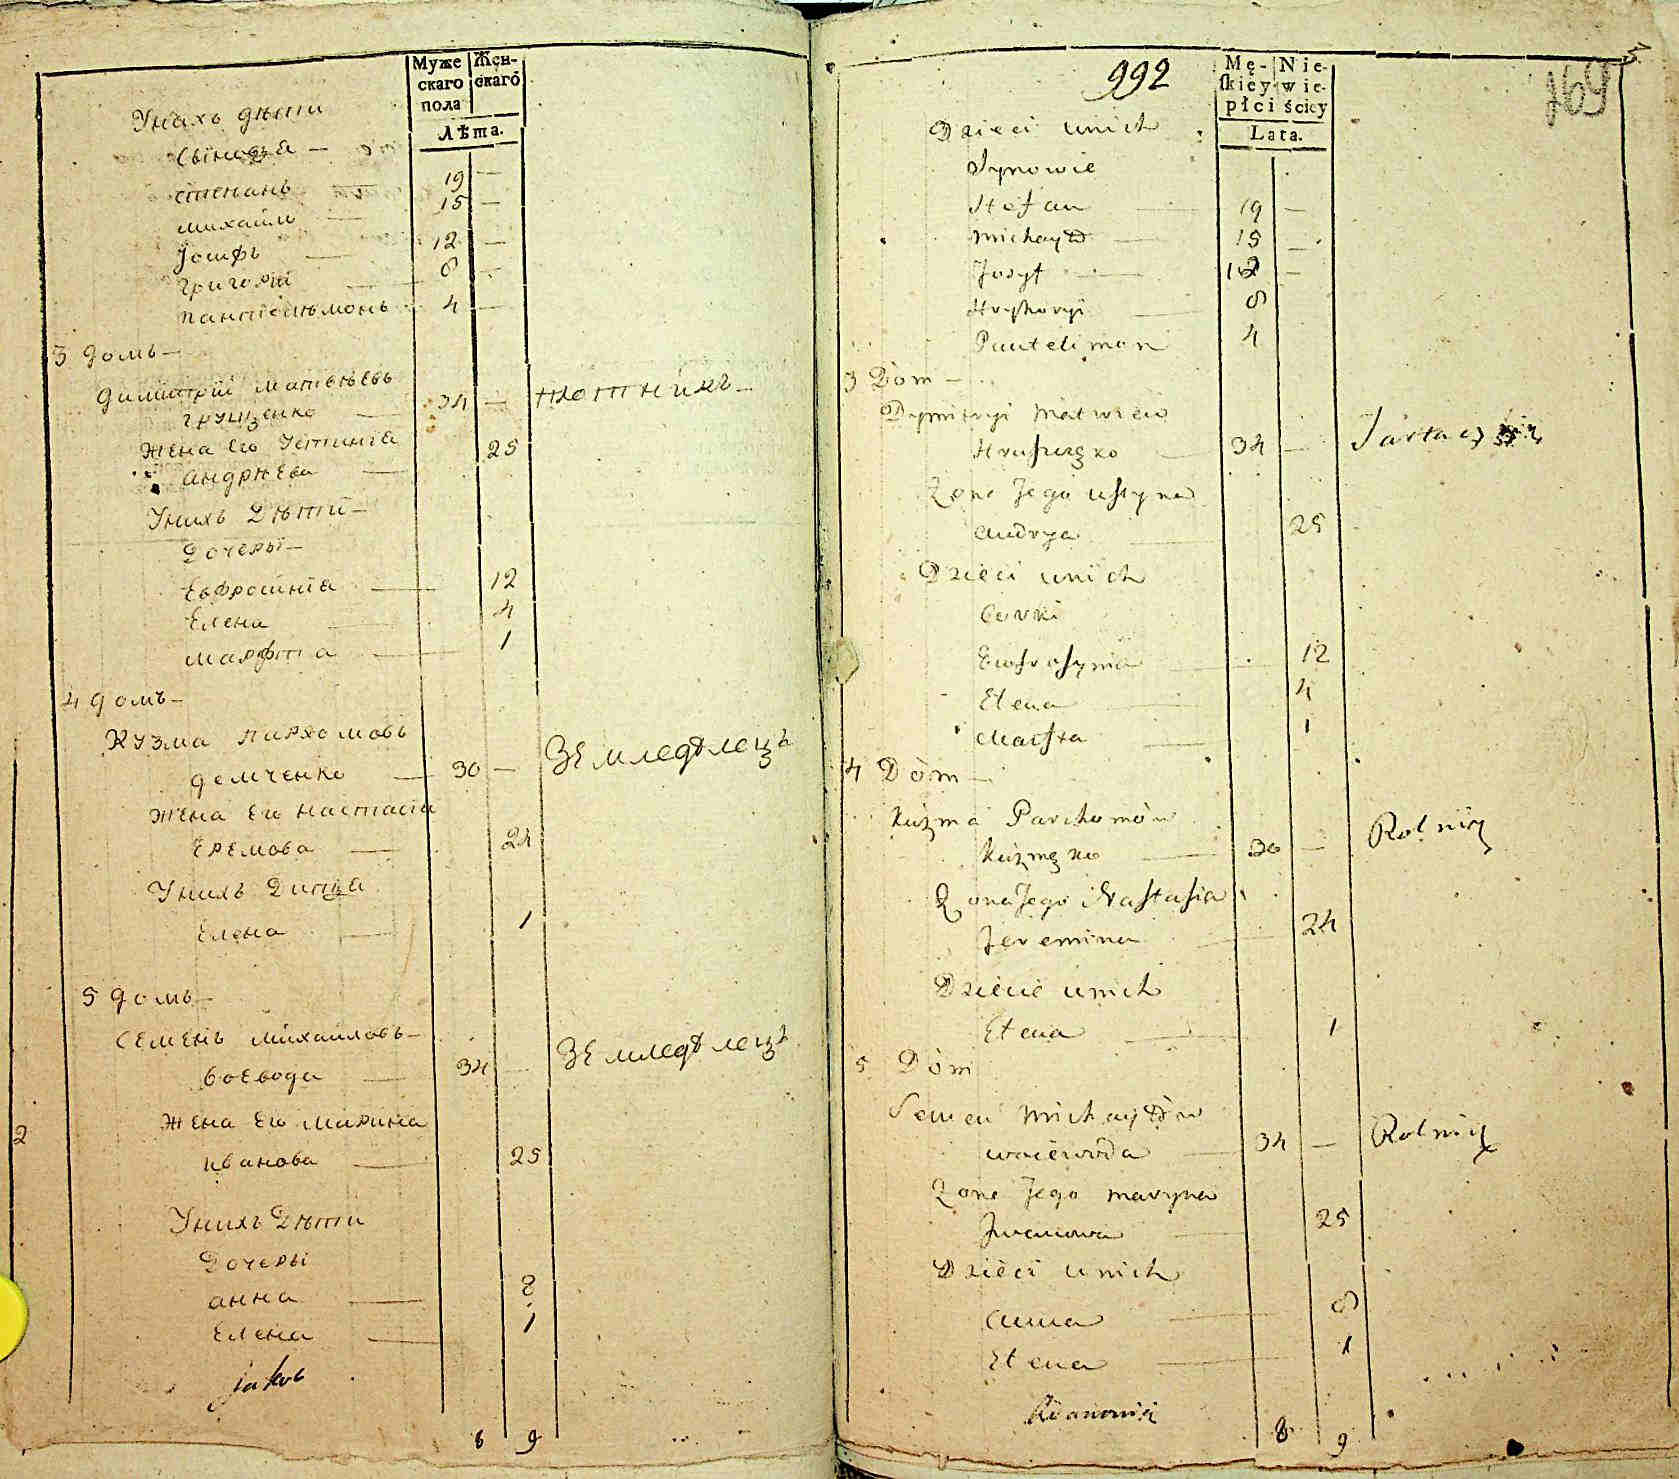 Муже
скаго
пола
Жен-
скаго
Лѣта.
Унихъ дѣти
Сыновья —
степанъ 19 —
михаилъ — 15 —
Іосифъ — 12 —
григорій — 8 —
пантелѣмонъ 4 —
3 домъ —
димитрій матвѣевъ
грущенко — 34 — плотникъ —
жена его устинія 25
андрѣева —
Унихъ Дѣти —
Дочери —
Евфросинія — 12
Елена — 4
марфта — 1
4 домъ —
кузма пархомовъ
демченко — 30 — Земледѣлецъ
жена Его настасія
Еремова — 24
Унихъ Дитя
Елена — 1
5 домъ —
семенъ михаиловъ —
воевода — 34 — Земледѣлецъ
жена Его марина
иванова — 25
2
Унихъ Дѣти
Дочери
анна — 8
Елена — 1
8 9
992
169
Mę-
skiey
płci
Nie-
wie-
ściey
Lata.
Dzieci unich
Synowie
Stefan — 19 —
Michayło — 15 —
Jozyf — 12 —
Hryhoryi — 8
Pantelimon 4
3 Dom —
Dymitryi Matwieiow
Hruszczko — 34 —
Zona Jego ustyna
andrya — 25
Dzieci unich
Corki
Ewfrosynia — 12
Elena — 4
Marfta — 1
4 Dom —
Kuzma Parchomow
Kuzmęko — 30 — Rolnik
Zona Jego Nastasia
Jeremina — 24
Dziecie unich
Elena — 1
5 Dom
Semen Michayłow
woiewoda — 34 — Rolnik
Zona Jego maryna
Jwanowa — 25
Dzieci unich
anna — 8
Elena — 1
8 9